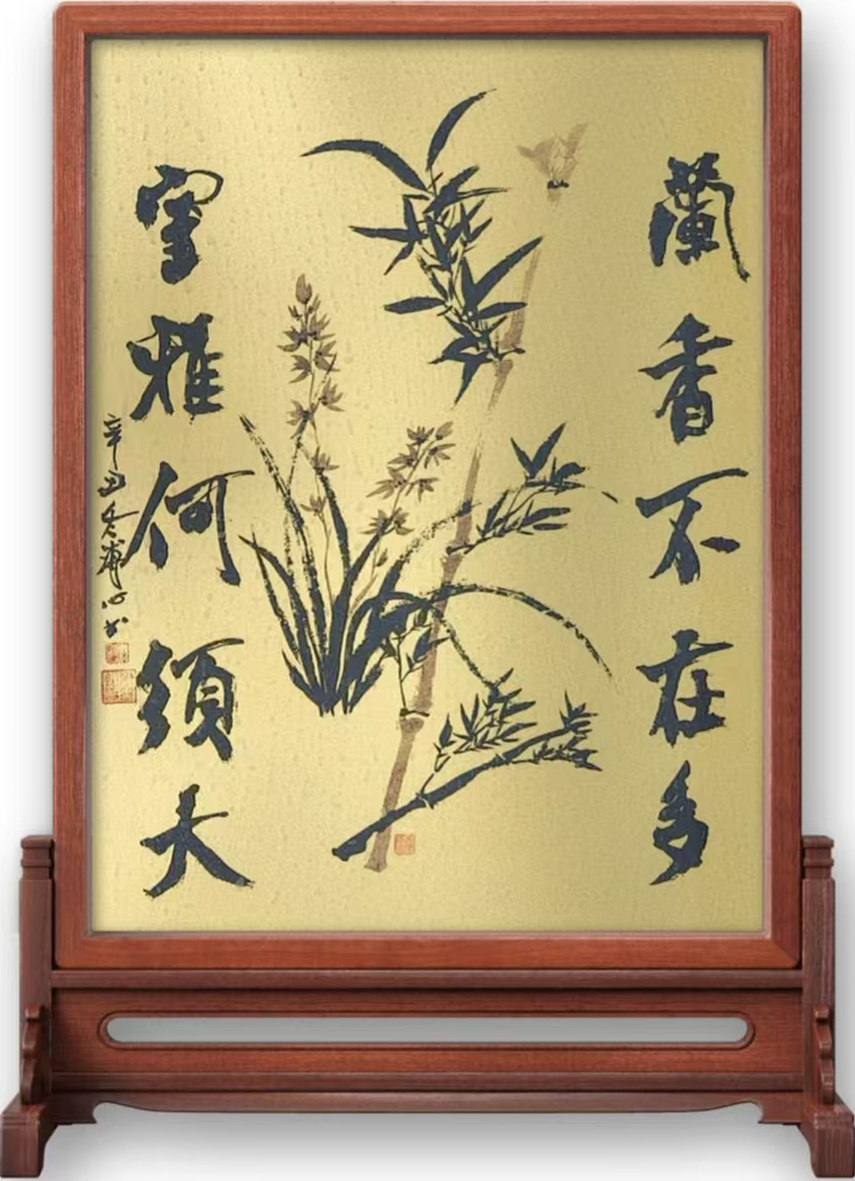 蘭香不在多
室雅何須大
辛丑冬